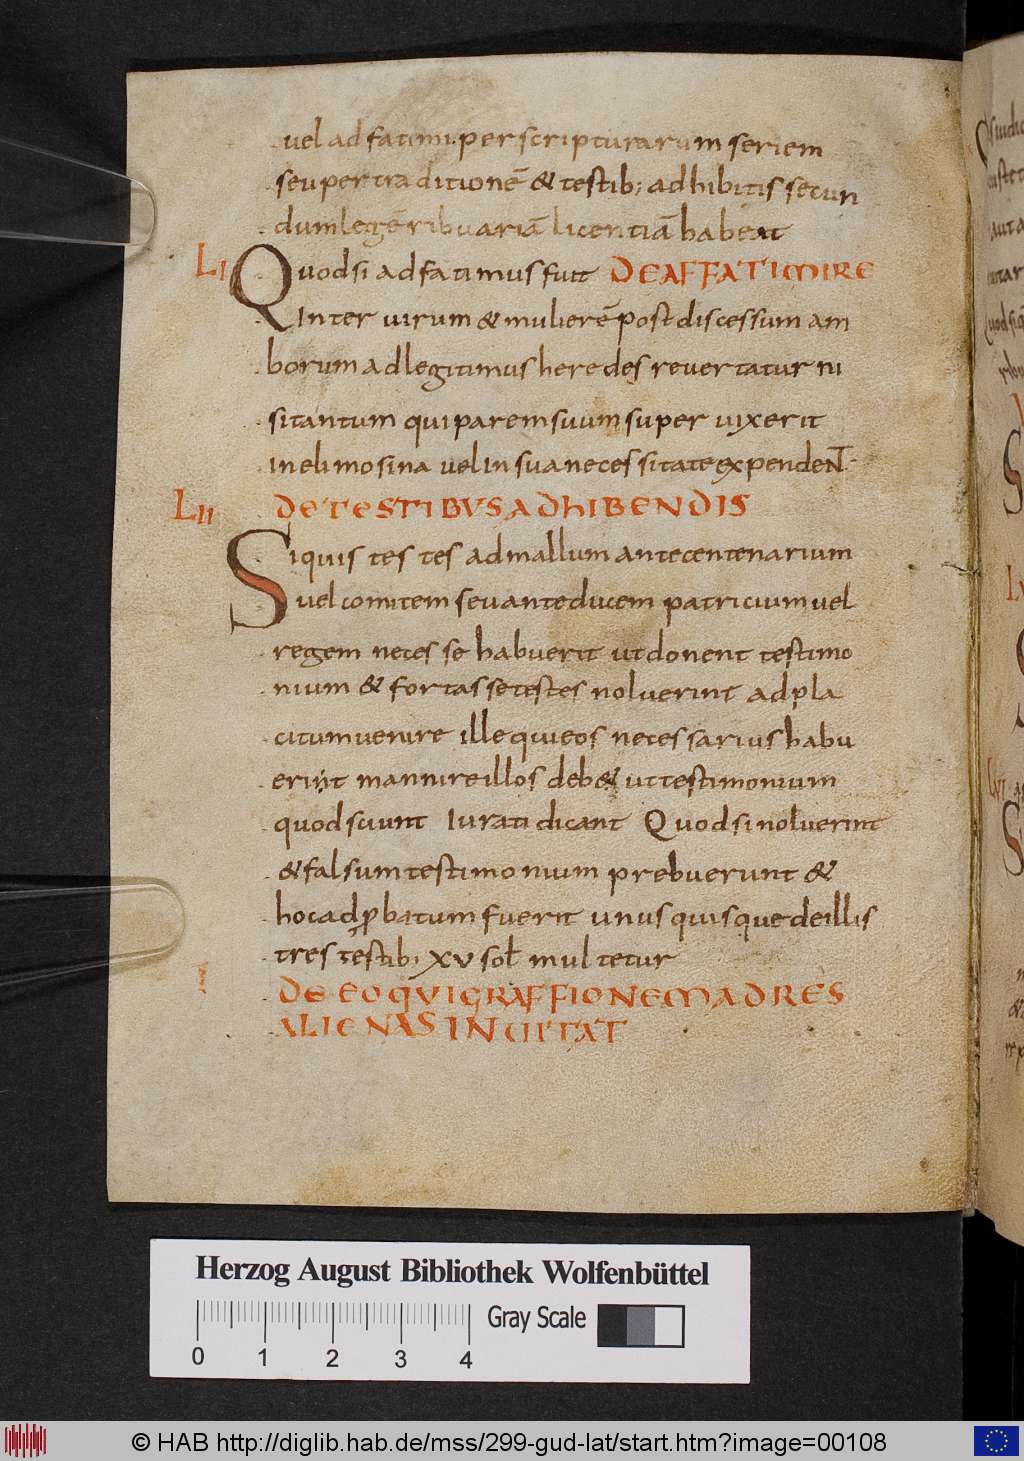 uel ad fatimi. per scripturarum seriem
seu per traditionē & testib; adhibitis secun
dum legē ribuariā licentiā habeat
LI Quod si adfatimus fuit DE AFFATIMIRE
Inter uirum & mulierē post discessum am
borum ad legitimus heredes reuertatur ni
si tantum qui parem suum super uixerit
in elimosina uel In sua necessitate expendeNT
LII DE TESTIBUS ADHIBENDIS
Si quis testes ad mallum ante centenarium
uel comitem seu ante ducem patricium uel
regem necesse habuerit ut donent testimo
nium & fortasse testes noluerint ad pla
citum uenire ille qui eos necessarius habu
erint mannire illos deb& ut testimonium
quod sciunt Iurati dicant Quod si noluerint
& falsum testimonium prebuerunt &
hoc adꝓbatum fuerit unusquisque de illis
tres testib; XV soł multetur
DE EO QUI GRAFFIONEM AD RES
ALIENAS INUITAT
Herzog August Bibliothek Wolfenbüttel
Gray Scale
0 1 2 3 4
© HAB http://diglib.hab.de/mss/299-gud-lat/start.htm?image=00108